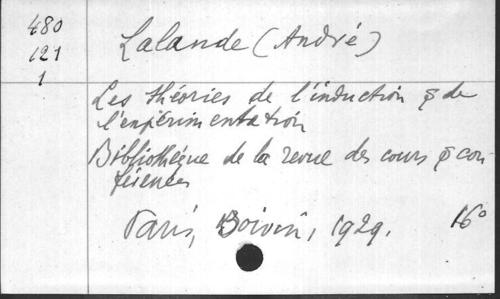 480
121
1
Lalande (André)
Les théories de l'induction & de
l'expérimentation
Bibliothèque de la revue des cours & con
férences
Paris, Boivin, 1929. 16°